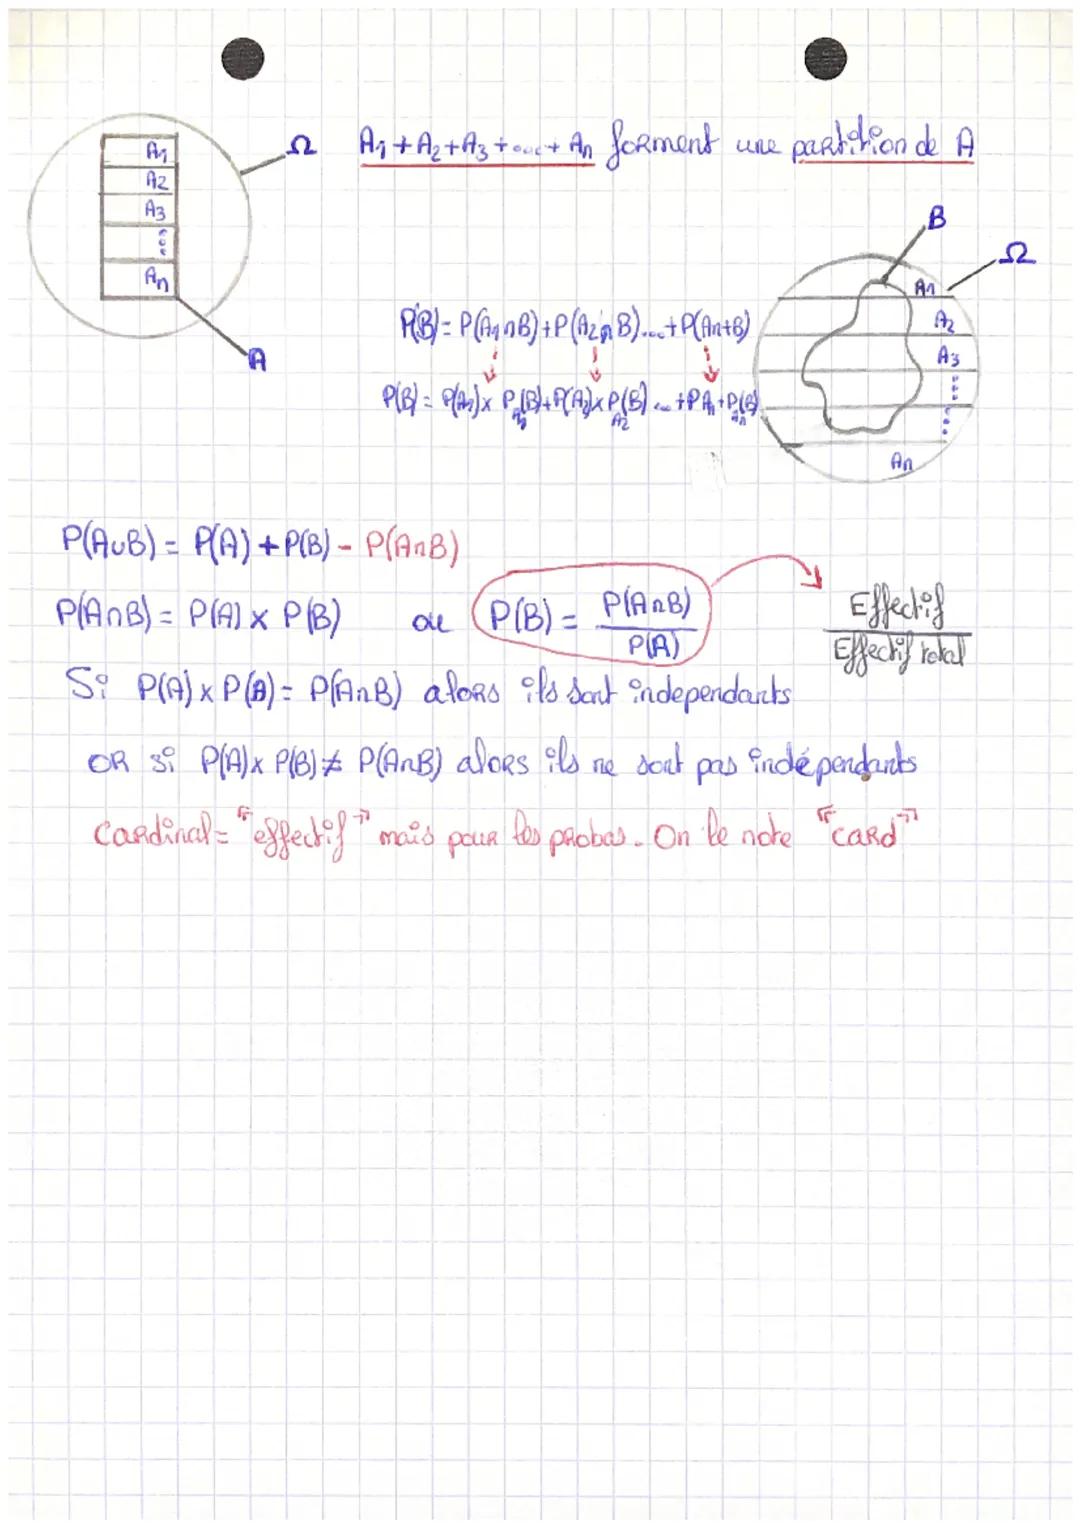 A1
A2
A3
...
An
Ω
A
A1+A2+A3+...+An forment une partition de A
B
Ω
A1
A2
A3
...
...
An
P(B)= P(A1∩B)+P(A2∩B)...+P(An+B)
P(B)= P(A1)x P_A1(B)+P(A2)x P_A2(B)...+PAn+P_An(B)
P(A∪B)= P(A)+P(B)- P(A∩B)
P(A∩B)= P(A) x P(B) ou P(B)= P(A∩B)/P(A)
Effectif
Effectif total
Si P(A)xP(B)= P(A∩B) alors ils sont independants
OR si P(A)x P(B)≠ P(A∩B) alors ils ne sont pas indépendants
Cardinal= "effectif" mais pour les probas. On le note "card"